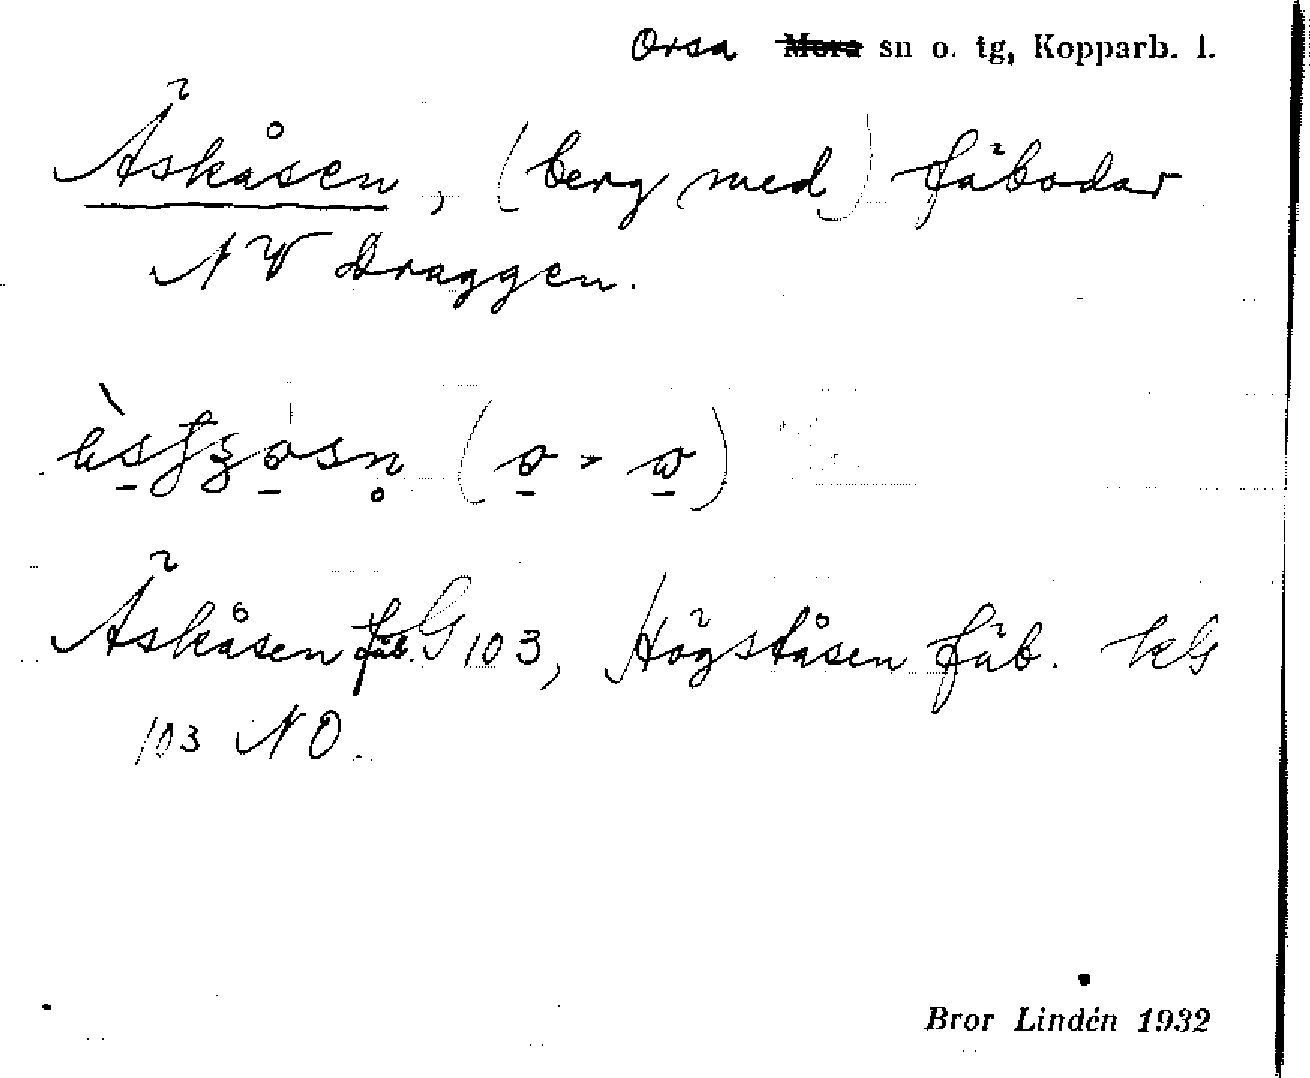 Orsa Mora sn o. tg, Kopparb. l.
Äskåsen, (berg med) fäbodar
NV Draggen.
Äskåsen fäb. G 103, Högståsen fäb. kG
103 NO.
Bror Lindén 1932